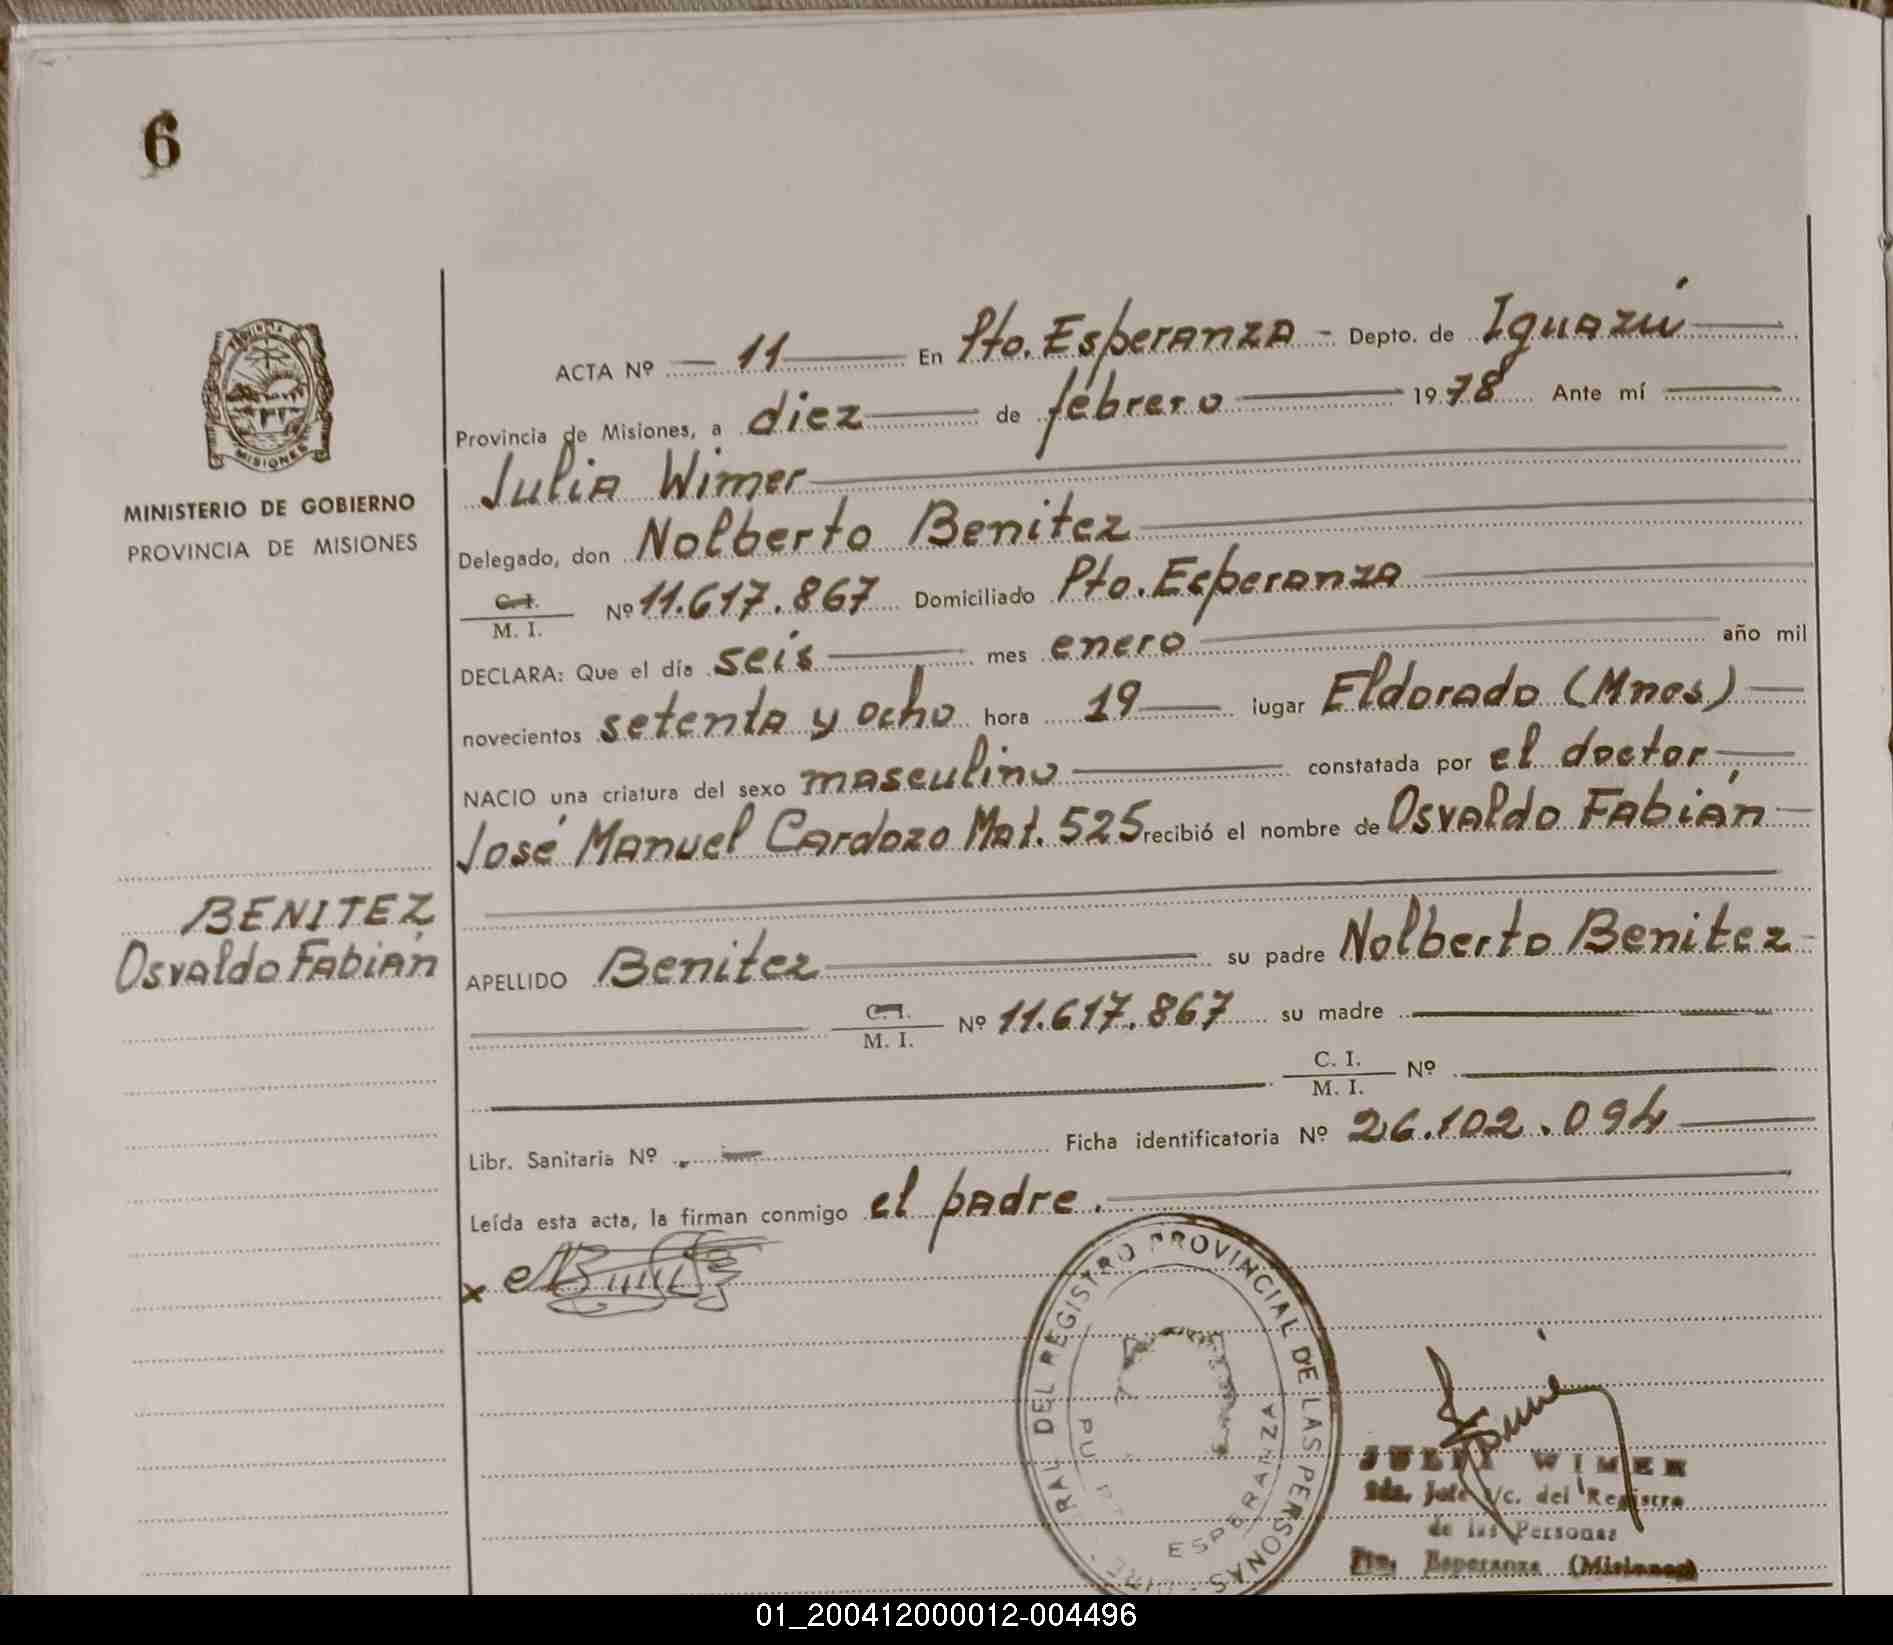 6
MISIONES
MINISTERIO DE GOBIERNO
PROVINCIA DE MISIONES
BENITEZ
Osvaldo Fabián
ACTA Nº 11 En Pto. Esperanza - Depto. de Iguazú
Provincia de Misiones, a diez de febrero 1978 Ante mí
Julia Wimer
Delegado, don Nolberto Benitez
C. I.
M. I. Nº 11.617.867 Domiciliado Pto. Esperanza
DECLARA: Que el día seis mes enero año mil
novecientos setenta y ocho hora 19 lugar Eldorado (Mnes)
NACIO una criatura del sexo masculino constatada por el doctor
José Manuel Cardozo Mat. 525 recibió el nombre de Osvaldo Fabián
APELLIDO Benitez su padre Nolberto Benitez
C. I.
M. I. Nº 11.617.867 su madre
C. I.
M. I. Nº
Libr. Sanitaria Nº - Ficha identificatoria Nº 26.102.094
Leída esta acta, la firman conmigo el padre.
x
RAL DEL REGISTRO PROVINCIAL DE LAS PERSONAS
ESPERANZA
JULIA WIMER
Jefe /c. del Registro
de las Personas
Pto. Esperanza (Misiones)
01_200412000012-004496